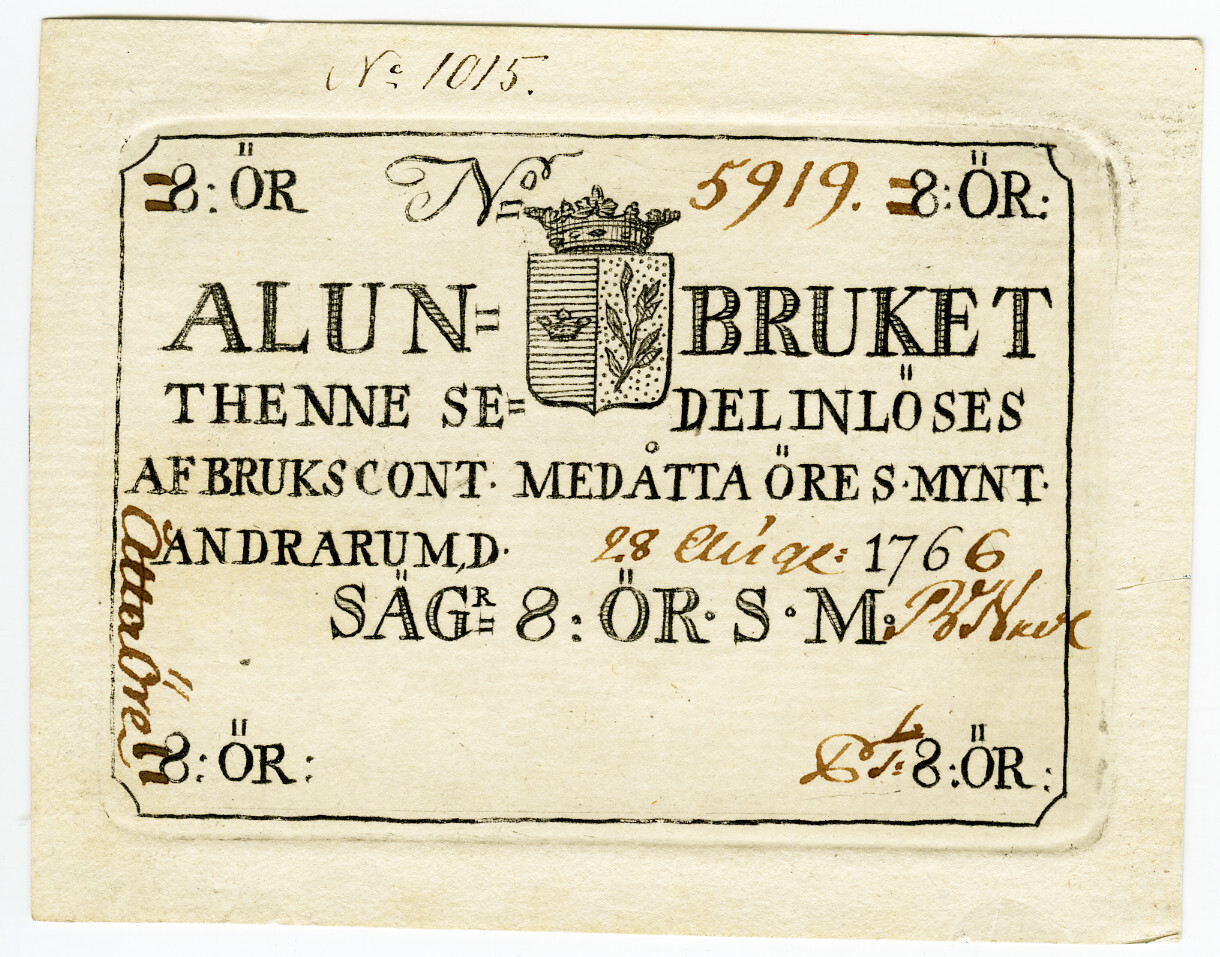 No 1015.
8: ÖR No 5919. 8: ÖR:
ALUN= BRUKET
THENNE SE= DEL INLÖSES
AF BRUKS CONT. MED ÅTTA ÖRE S. MYNT.
ANDRARUM, D. 28 Aug: 1766
SÄGR 8: ÖR. S. M:
Åtta Öre
8: ÖR: 8: ÖR: